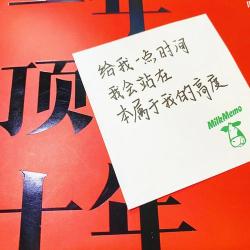 顶
给我一点时间
我会站在
本属于我的高度
MilkMemo
年